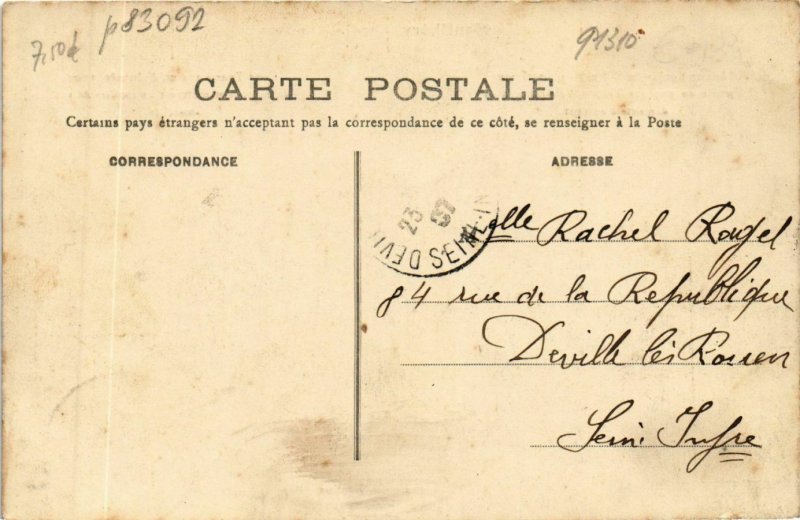 7,50€ p83092 91310
CARTE POSTALE
Certains pays étrangers n'acceptant pas la correspondance de ce côté, se renseigner à la Poste
CORRESPONDANCE
ADRESSE
23
DEVIL
SEINE-IN
Melle Rachel Ragel
84 rue de la Republique
Deville les Rouen
Seine Infre